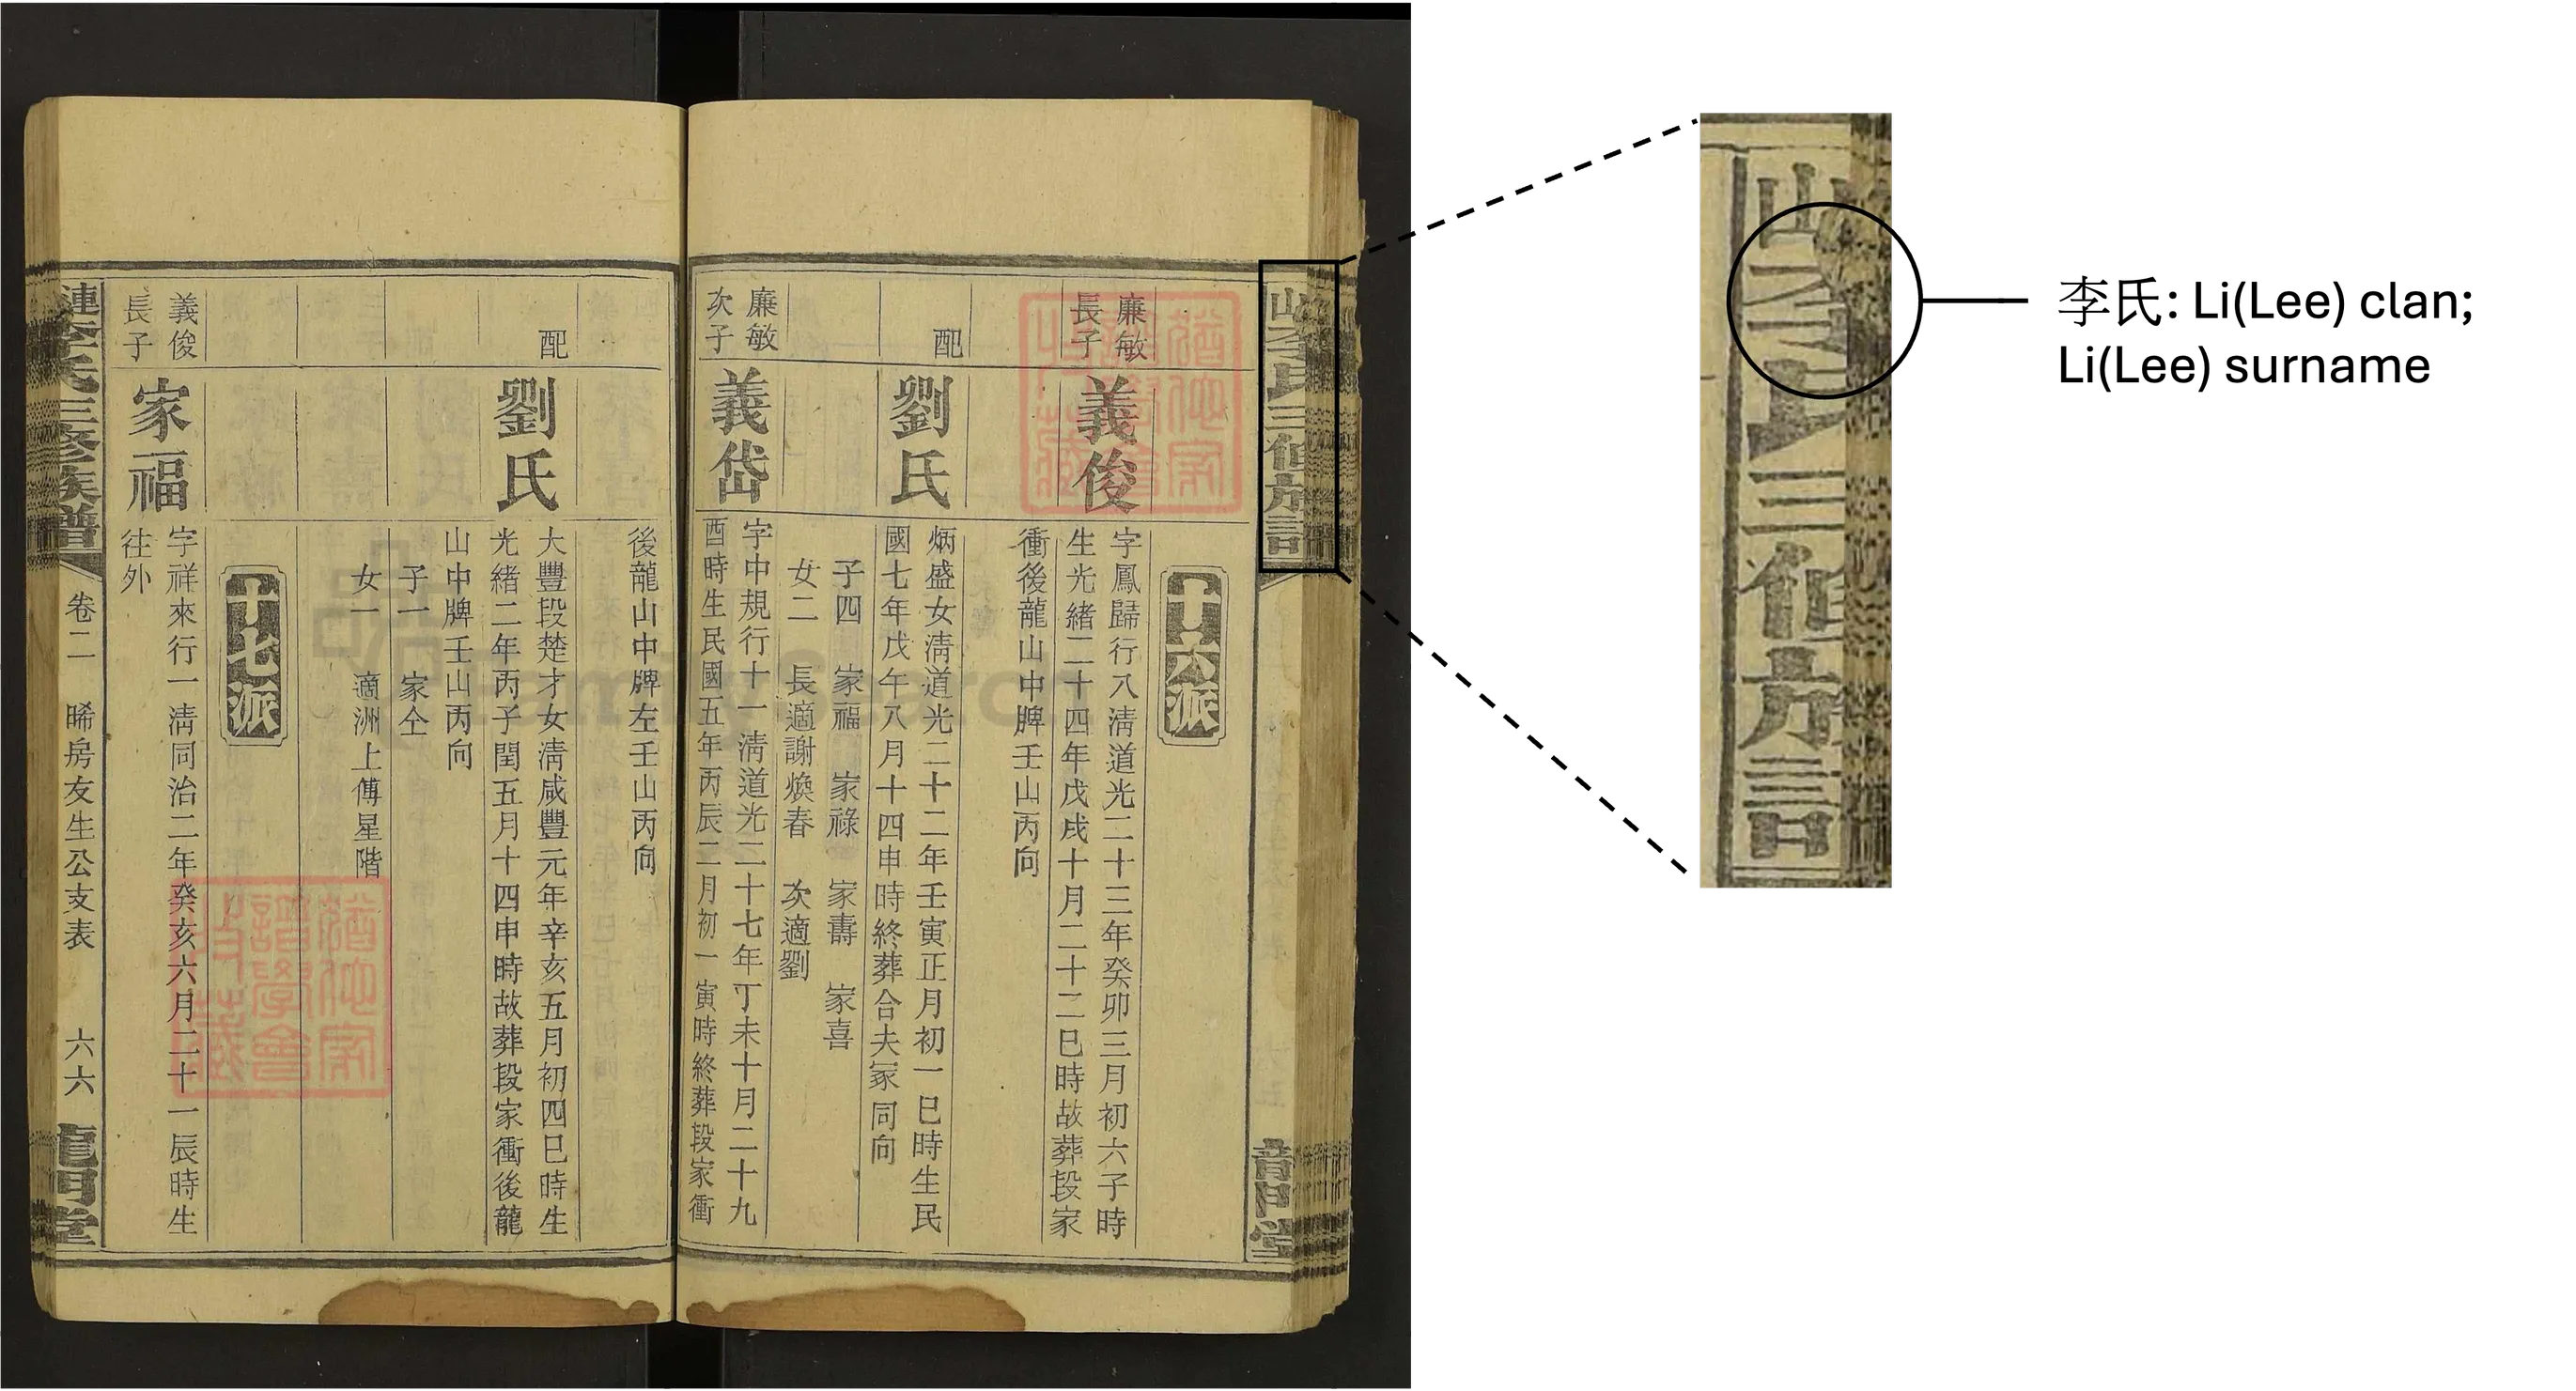 十六派
廉敏長子
義俊
字鳳歸行八清道光二十三年癸卯三月初六子時
生光緒二十四年戊戌十月二十二巳時故葬段家
衝後龍山中牌壬山丙向
配
劉氏
炳盛女清道光二十二年壬寅正月初一巳時生民
國七年戊午八月十四申時終葬合夫冢同向
子四 家福 家祿 家壽 家喜
女二 長適謝煥春 次適劉
廉敏次子
義岱
字中規行十一清道光二十七年丁未十月二十九
酉時生民國五年丙辰二月初一寅時終葬段家衝
後龍山中牌左壬山丙向
配
劉氏
大豐段楚才女清咸豐元年辛亥五月初四巳時生
光緒二年丙子閏五月十四申時故葬段家衝後龍
山中牌壬山丙向
子一 家仝
女一 適洲上傅星階
十七派
義俊長子
家福
字祥來行一清同治二年癸亥六月二十一辰時生
往外
漣李氏三修族譜
卷二 晞房友生公支表 六六
龍門堂
李氏: Li(Lee) clan;
Li(Lee) surname